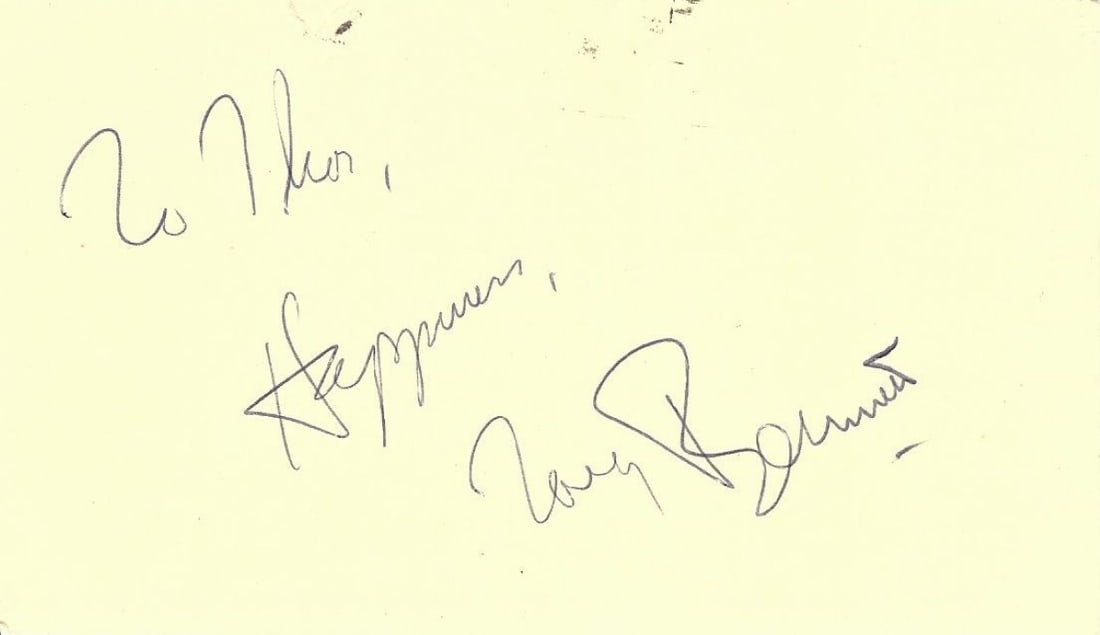 To Thor,
Happiness,
Tony Bennett